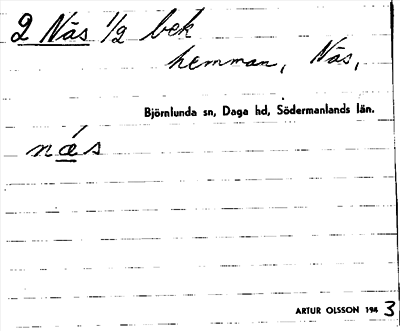 2 Näs 1/2 bek
hemman, Näs,
Björnlunda sn, Daga hd, Södermanlands län.
næ̀s
ARTUR OLSSON 1943